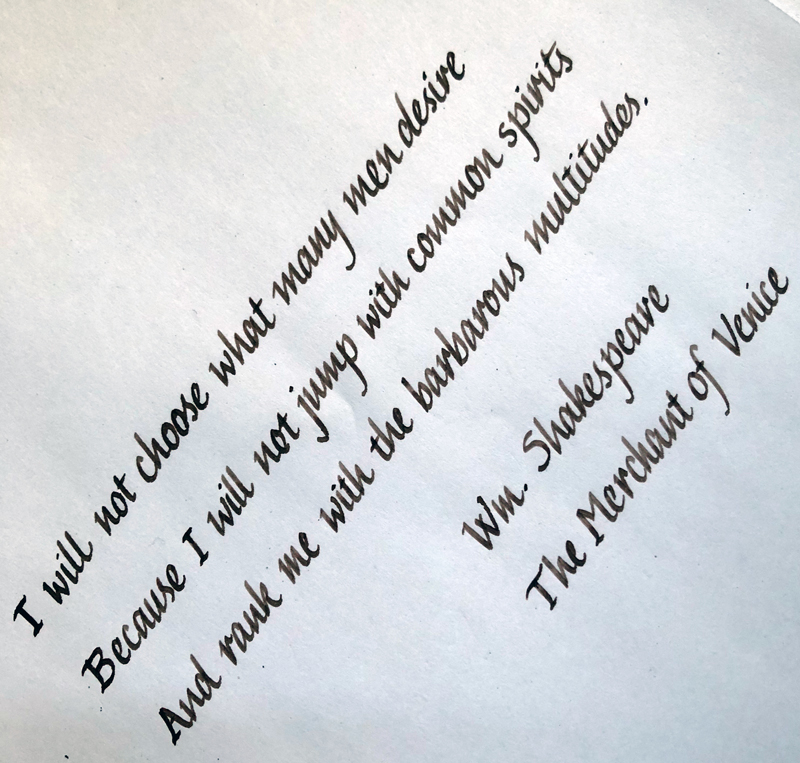 I will not choose what many men desire
Because I will not jump with common spirits
And rank me with the barbarous multitudes.
Wm. Shakespeare
The Merchant of Venice